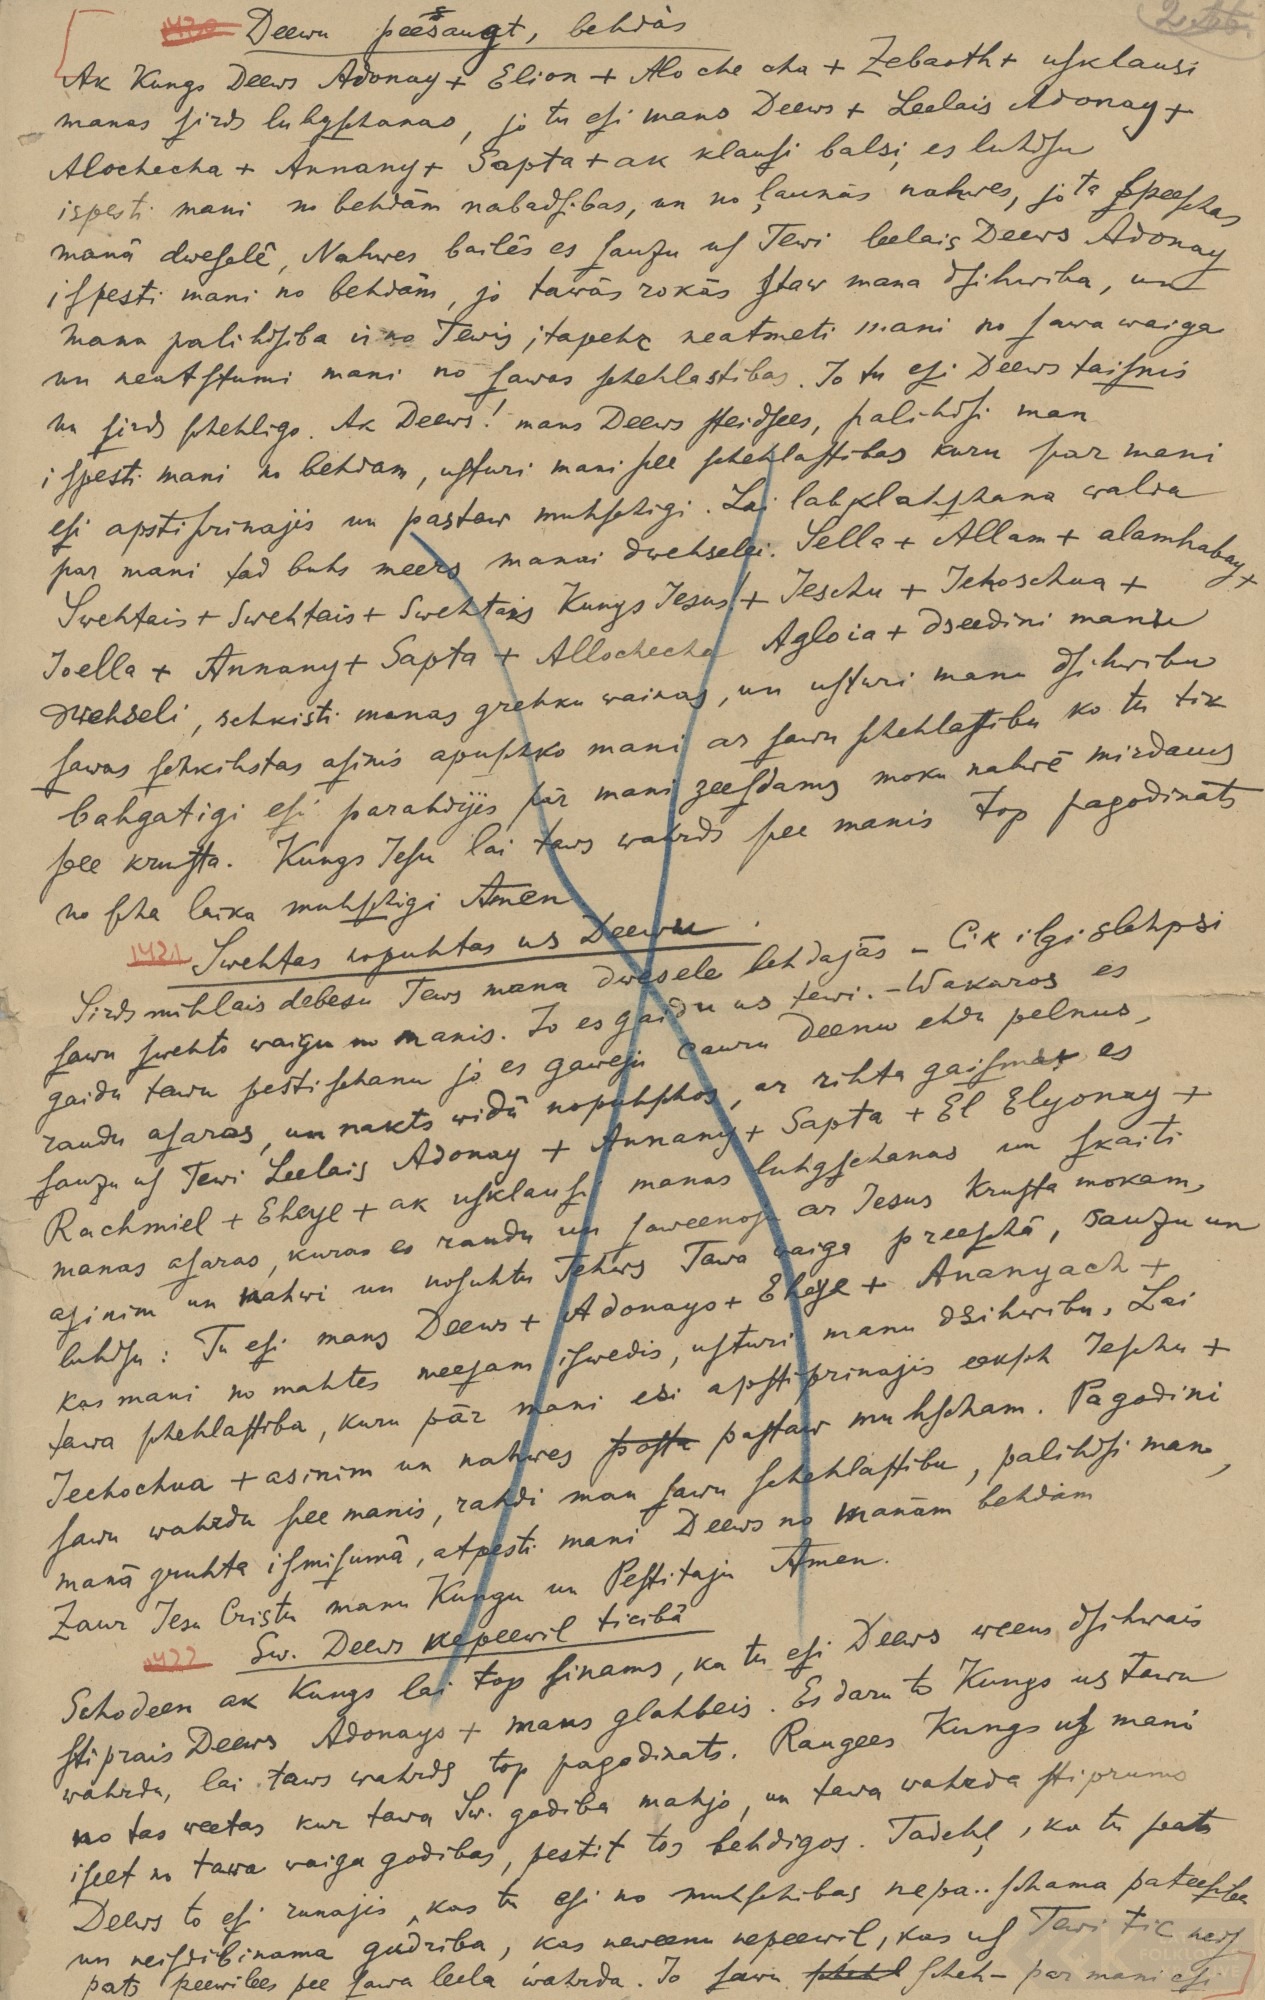 1420 Deewu peesaugt, behdās
Ak Kungs Deews Adonay + Elion + Aloche cha + Zebaoth + usklausi
manas sirds luhgschanas, jo tu esi mans Deews + Leelais Adonay +
Alochecha + Annany + Sapta + ak klausi balsi, es luhdsu
ispesti mani no behdām nabadsibas, un no ļaunās nahwes, jo ta speeschas
manā dweselē, Nahwes bailēs es sauzu us Tewi leelais Deews Adonay
ispesti mani no behdām, jo tawās rokās staw mana dsihwiba, un
mana palihdsiba ir no Tewis, tapehz neatmeti mani no sawa waiga
un neatstumi mani no sawas schehlastibas. Jo tu esi Deews taisnis
un sirds schehligs. Ak Deews! mans Deews steidsees, palihdsi man
ispesti mani no behdam, usturi mani pee schehlastibas kuru par mani
esi apstiprinajis un pastaw muhschigi. Lai labklahschana walda
par mani tad buhs meers manai dwehselei. Sella + Allam + alamhabay +
Swehtais + Swehtais + Swehtais Kungs Jesus! + Jeschu + Jehoschua +
Joella + Annany + Sapta + Allochecha Agloia + dseedini manu
dwehseli, schkisti manas grehku wainas, un usturi manu dsihwibu
sawas schkihstas asinis apuschko mani ar sawu schehlastibu ko tu tik
bahgatigi esi parahdijis pār mani zeesdams moku nahwē mirdams
pee krusta. Kungs Jesu lai taws wahrds pee manis top pagodinats
no scha laika muhschigi Amen
1421 Swehtas nopuhtas us Deewu.
Sirds mihlais debesu Tews mana dwesele behdajās – Cik ilgi slehpsi
sawu swehto waigu no manis. Jo es gaidu us tewi. – Wakaros es
gaidu tawu pestischanu jo es gaweju cauru deenu ehdu pelnus,
raudu asaras, un nakts widū nopuhschos, ar rihta gaismas es
sauzu us Tewi Leelais Adonay + Annany + Sapta + El Elyonay +
Rachmiel + Eheye + ak usklausi manas luhgschanas un skaiti
manas asaras, kuras es raudu un saweenosu ar Jesus krusta mokam,
asinim un nahwi un nosuhtu Tehws Tawa waiga preeschā, sauzu un
luhdsu: Tu esi mans Deews + Adonays + Eheye + Ananyach +
kas mani no mahtes meesam iswedis, usturi manu dsihwibu, Lai
tawa schehlastiba, kuru pār mani esi apstiprinajis eeksch Jeschu +
Jechochua + asinim un nahwes pasta pastaw muhscham. Pagodini
sawu wahrdu pee manis, rahdi man sawu schehlastibu, palihdsi man,
manā gruhta ismisumā, atpesti mani Deews no manām behdām
Zaur Jesu Cristu manu Kungu un Pestitaju Amen.
1422 Sw. Deews nepeewil ticibā
Schodeen ak Kungs lai top sinams, ka tu esi Deews weens dsihwais
stiprais Deews Adonays + mans glahbeis. Es daru to Kungs us tawu
wahrdu, lai taws wahrds top pagodinats. Raugees Kungs us mani
no tas weetas kur tawa Sw. godiba mahjo, un tawa wahrda stiprums
iseet no tawa waiga godibas, pestit tos behdigos. Tadehļ, ka tu pats
Deews to esi runajis, kas tu esi no muhschibas nepa..schama pateesiba
un neisdibinama gudriba, kas neweenu nepeewil, kas us Tewi tic
pats peewilees pee sawa leela wahrda. Jo sawu scheh– par mani esi